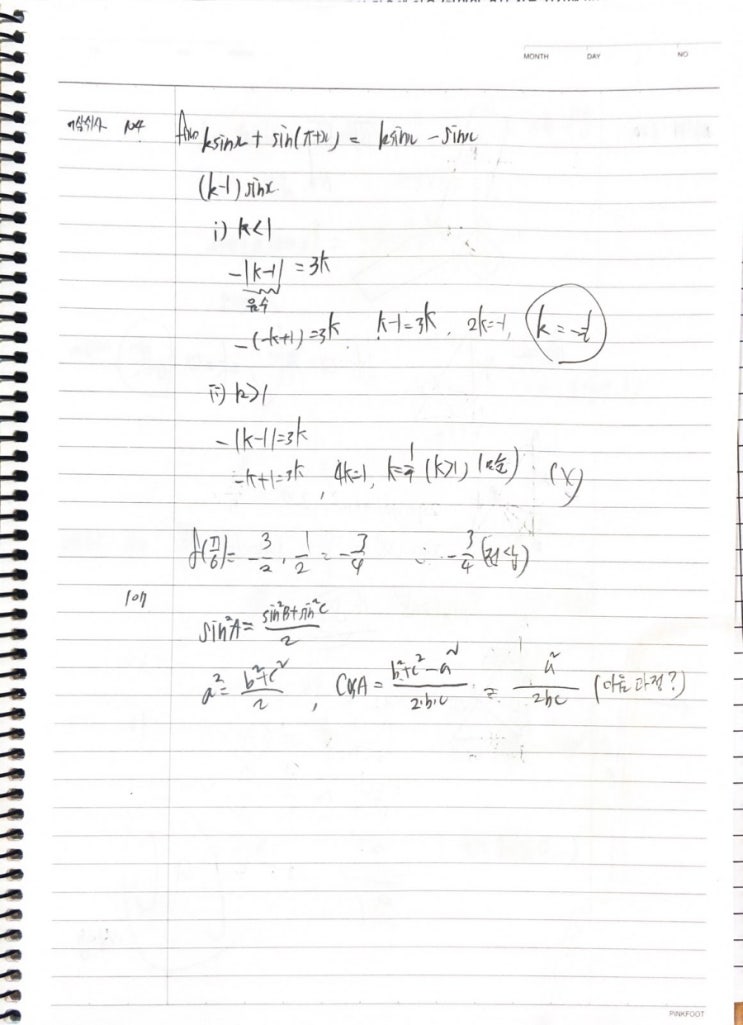 MONTH DAY NO
f(x)= ksinx + sin(π+x) = ksinx - sinx
(k-1) sinx
i) k<1
-|k-1| = 3k
음수
-(-k+1) = 3k, k-1=3k, 2k=-1, k = -1/2
ii) k>1
-|k-1|=3k
-k+1=3k, 4k=1, k=1/4 (k>1) (모순) (X)
f(π/6) = -3/2 · 1/2 = -3/4 ∴ -3/4
sin²A = (sin²B+sin²C)/2
a² = (b²+c²)/2, CosA = (b²+c²-a²)/(2·b·c) = a²/(2bc) (다음 과정?)
PINKFOOT